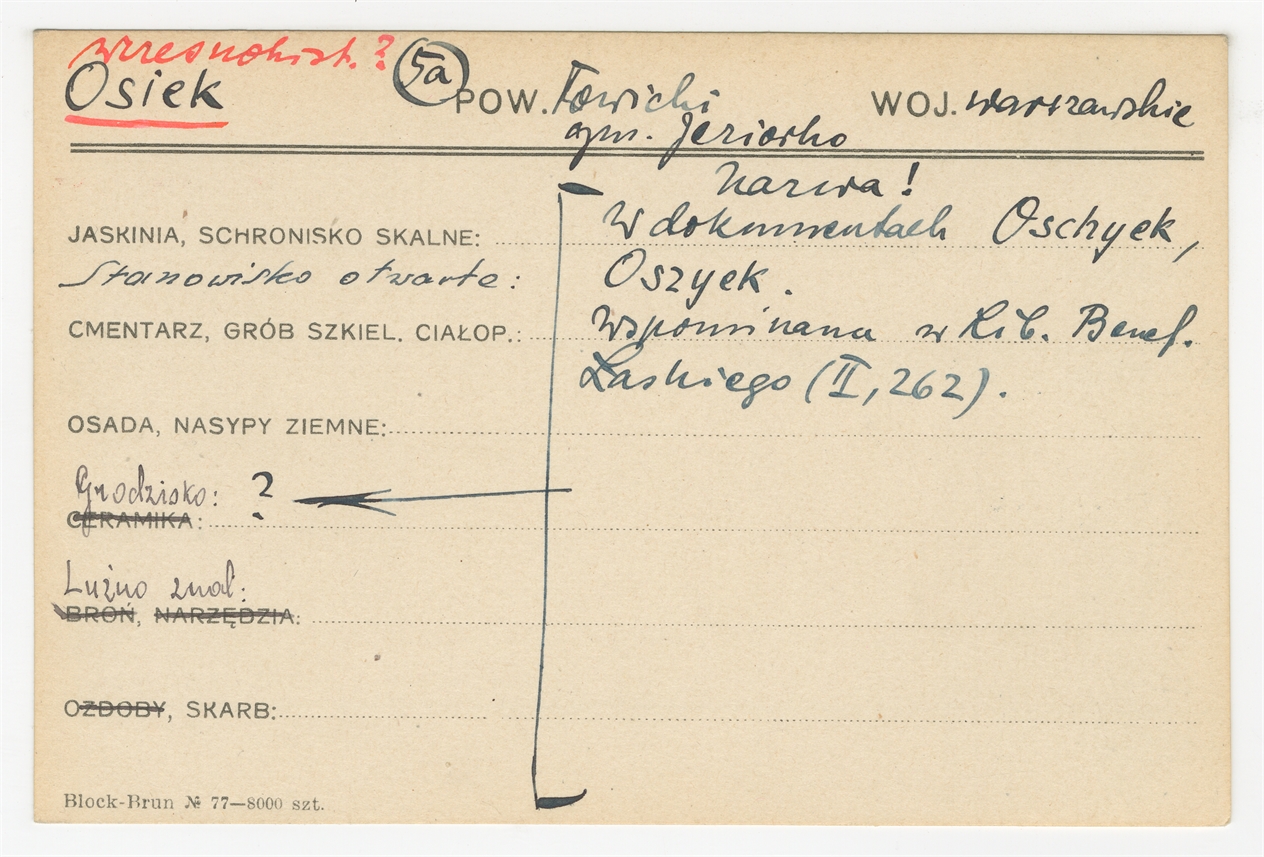 wczesnohist.?
Osiek 5a POW. Łowicki WOJ. warszawskie
gm. Jeziorko
Nazwa!
JASKINIA, SCHRONISKO SKALNE: W dokumentach Oschyek,
Stanowisko otwarte: Oszyek.
CMENTARZ, GRÓB SZKIEL. CIAŁOP.: Wspominana w Lib. Benef.
Łaskiego (II, 262).
OSADA, NASYPY ZIEMNE:
Grodzisko: ?
CERAMIKA:
Luźno znal:
BROŃ, NARZĘDZIA:
OZDOBY, SKARB:
Block-Brun № 77—8000 szt.